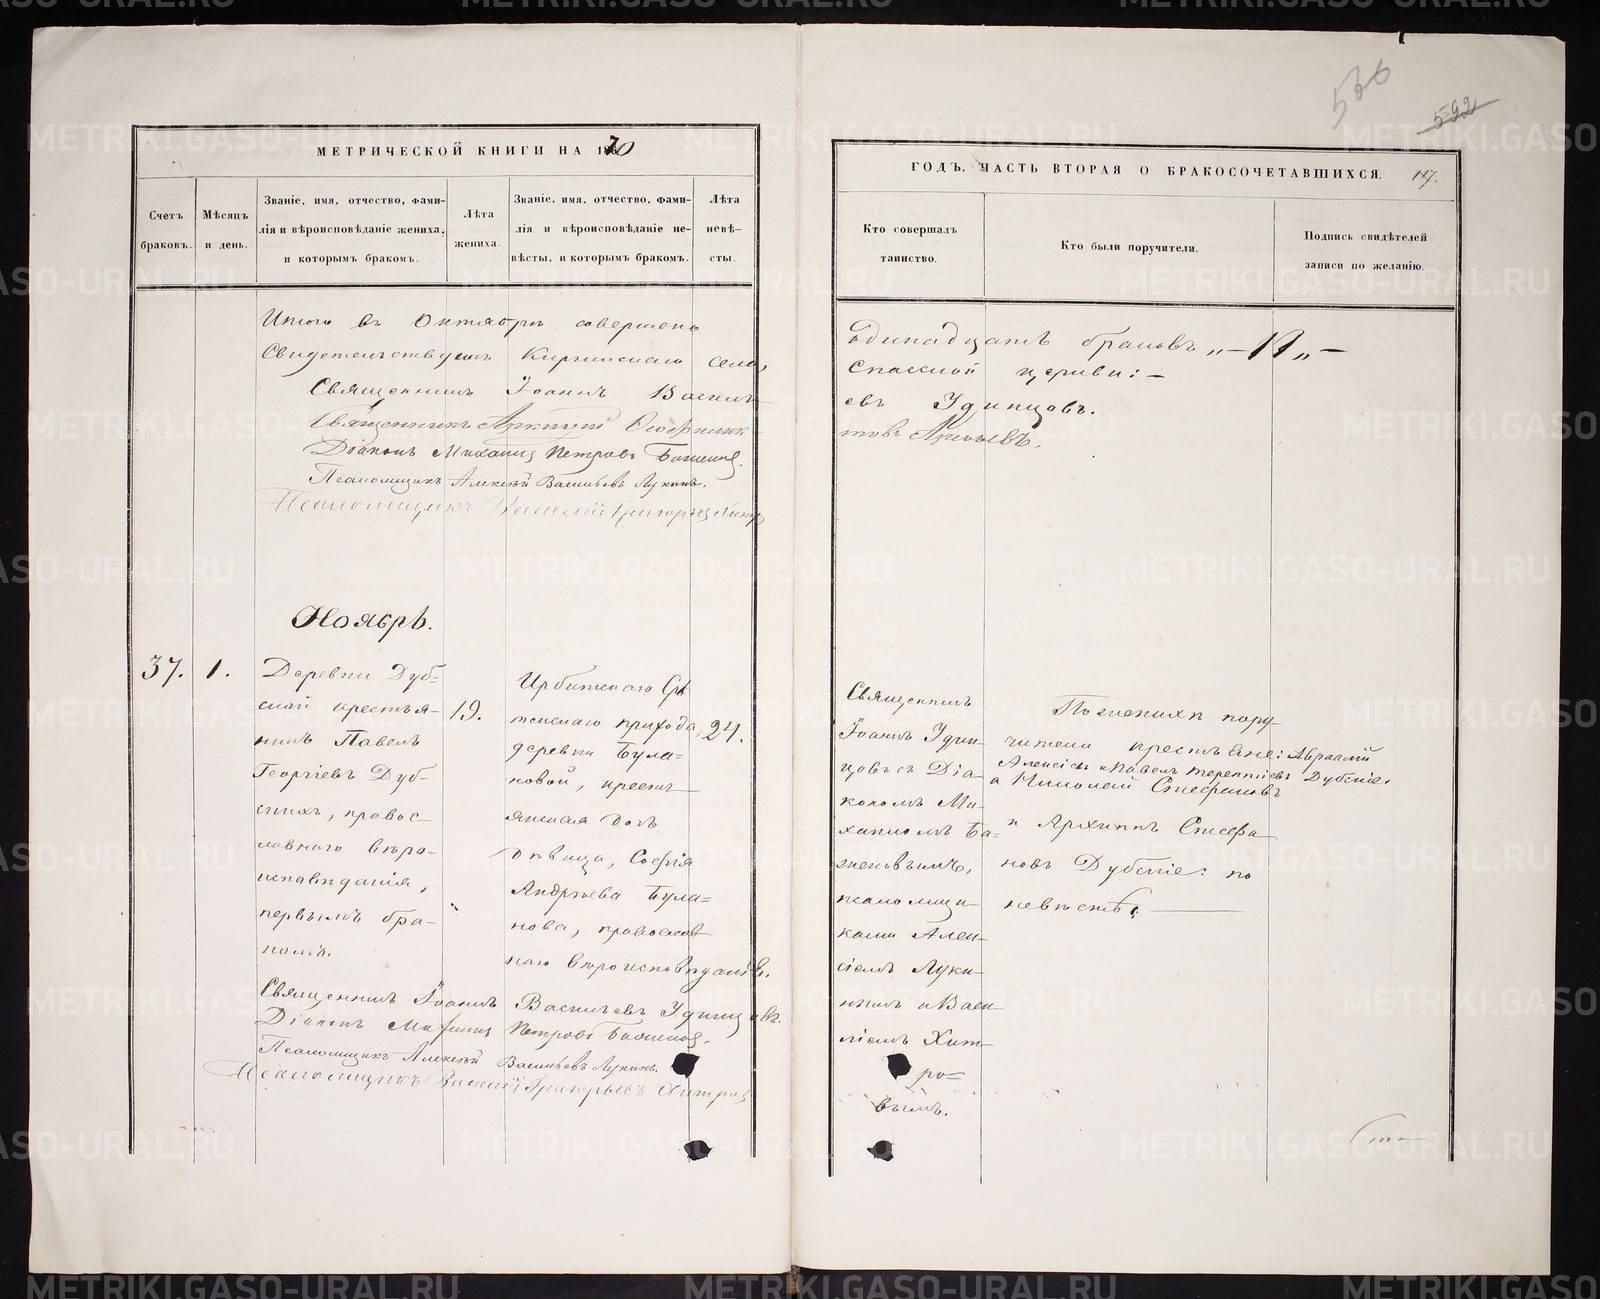 МЕТРИЧЕСКОЙ КНИГИ НА 1870
Счетъ браковъ.
Мѣсяцъ и день.
Званіе, имя, отчество, фами-
лія и вѣроисповѣданіе жениха,
и которымъ бракомъ.
Лѣта
жениха.
Званіе, имя, отчество, фами-
лія и вѣроисповѣданіе не-
вѣсты, и которымъ бракомъ.
Лѣта
невѣ-
сты.
Итого въ Октябрѣ совершено
Свидетельствуемъ Киргишанского села,
Священникъ Іоаннъ Василь-
Священникъ
Діаконъ Михаилъ Петровъ Баженовъ.
Псаломщикъ Алексѣй Васильевъ Лукинъ.
Псаломщикъ Василій Григорьев
Ноябрь.
37.
1.
Деревни Дуб-
ской крестья-
нинъ Павелъ
Георгіевъ Дуб-
скихъ, правос-
лавнаго вѣро-
исповѣданія,
первымъ бра-
комъ.
19.
Ирбитскаго Срѣ-
тенскаго прихода,
деревни Була-
новой, кресть-
янская дочь
дѣвица, Софія
Андрѣева Була-
нова, православ-
наго вѣроисповѣданія.
24.
Священникъ Іоаннъ Васильевъ Удинцовъ.
Діаконъ Михаилъ Петровъ Баженовъ.
Псаломщикъ Алексѣй Васильевъ Лукинъ.
Псаломщикъ Василій Григорьевъ Хитровъ
536
592
ГОДЪ, ЧАСТЬ ВТОРАЯ О БРАКОСОЧЕТАВШИХСЯ.
117.
Кто совершалъ
таинство.
Кто были поручители.
Подпись свидѣтелей
записи по желанію.
Одинадцать браковъ „–11„–
Спасской церкви:–
евъ Удинцовъ.
Священникъ
Іоаннъ Удин-
цовъ съ Діа-
кономъ Ми-
хаиломъ Ба-
женовымъ,
псаломщи-
ками Алек-
сіемъ Луки-
нымъ и Васи-
ліемъ Хит-
ро-
вымъ.
По женихѣ пору-
чители крестьяне: Авраамій
Алексіевъ и Павелъ Терентіевъ Дубскіе.
а Николай Стефановъ
и Архиппъ Стефа-
новъ Дубскіе: по
невѣстѣ.
METRIKI.GASO-URAL.RU